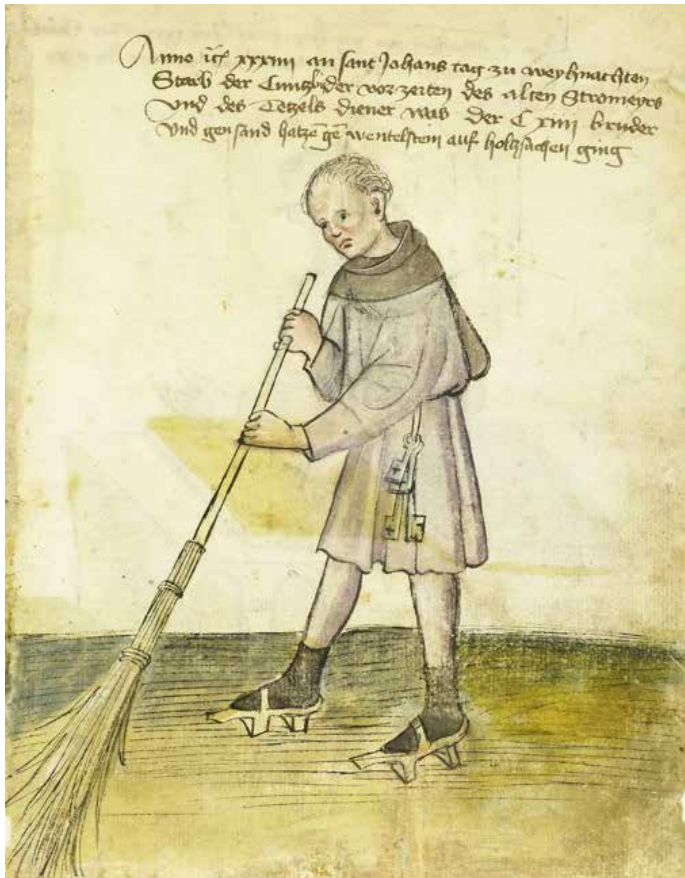 Anno iiijc xxxiiii an sant Johans tag zu weyhnachten
Starb der Cuntz der vor zeiten des alten Stromeyrs
Vnd des Tetzels diener was Der C xiiii bruder
Vnd gen sand hatze gē wentelstein auf holtzschuhen ging